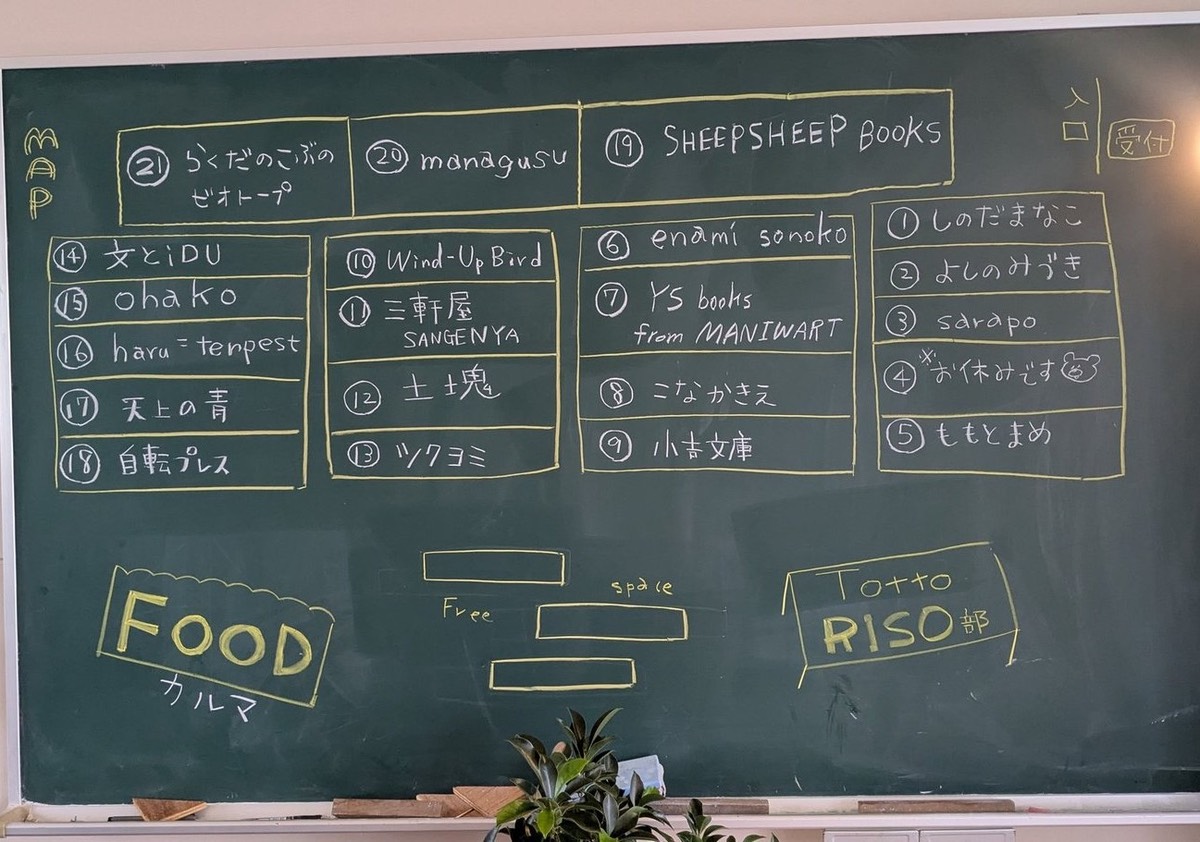 MAP
入口
受付
㉑ らくだのこぶの
ビオトープ
⑳ managusu
⑲ SHEEPSHEEP BOOKS
⑭ 文とiDU
⑮ ohako
⑯ haru=tempest
⑰ 天上の青
⑱ 自転プレス
⑩ Wind-Up Bird
⑪ 三軒屋
SANGENYA
⑫ 土塊
⑬ ツクヨミ
⑥ enami sonoko
⑦ YS books
from MANIWART
⑧ こなかきえ
⑨ 小吉文庫
① しのだまなこ
② よしのみづき
③ sarapo
④ ※お休みです
⑤ ももとまめ
FOOD
カルマ
Free
space
Totto
RISO部